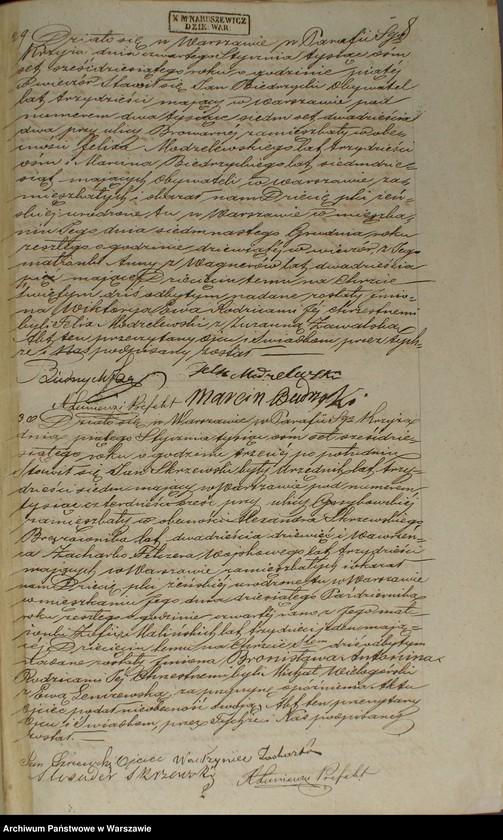 K M NARUSZEWICZ
DZIEK. WAR.
8
29 Działo się w Warszawie w Parafii Sgo
Krzyża dnia czwartego Stycznia tysiąc ośm
set sześćdziesiątego roku o godzinie piątej
wieczór. Stawił się Jan Biedrzycki Obywatel
lat trzydzieści mający w Warszawie pod
numerem dwa tysiące siedm set dwadzieścia
dwa przy ulicy Browarnej zamieszkały w obec
ności Felixa Modzelewskiego lat trzydzieści
ośm i Marcina Biedrzyckiego lat siedmdzie-
siąt mających Obywateli w Warszawie za
mieszkałych i okazał nam Dziecię płci żeń-
skiej urodzone tu w Warszawie w mieszka-
niu Jego dnia siedmnastego Grudnia roku
zeszłego o godzinie dziewiątej wieczór, z Jego
małżonki Anny z Wagnerów lat dwadzieścia
mającej Dziecięciu temu na Chrzcie
świętym dziś odbytym nadane zostały imio-
na Wiktorja Ewa Rodzicami Jej chrzestnemi
byli Felix Modzelewski i Zuzanna Zawadzka
Akt ten przeczytany Ojcu i Świadkom przez tych-
że i Nas podpisany został
Felix Modzelewski
Marcin Biedrzycki
30 Działo się w Warszawie w Parafii Sgo Krzyża
dnia piątego Stycznia tysiąc ośm set sześćdzie-
siątego roku o godzinie trzeciej po południu
Stawił się Jan Skrzewski były Urzędnik lat trzy-
dzieści siedm mający w Warszawie pod numerem
tysiąc czterdzieści sześć przy ulicy Grzybowskiej
zamieszkały w obecności Alexandra Skrzewskiego
lat dwadzieścia dziewięć i Wawrzeń-
ca Zacharko Felczera Wojskowego lat trzydzieści
mających w Warszawie zamieszkałych i okazał
nam Dziecię płci żeńskiej urodzone tu w Warszawie
w mieszkaniu Jego dnia dziesiątego Października
roku zeszłego o godzinie czwartej rano z Jego mał-
żonki Zofii z Malińskich lat trzydzieści jeden mają-
cej. Dziecięciu temu na Chrzcie Stym dziś odbytym
nadane zostały imiona Bronisława Antonina
Rodzicami Jej Chrzestnemi byli Michał Wielogórski
i Ewa za przyczynę opóźnienia Aktu
Ojciec podał niemożność swoją. Akt ten przeczytany
Ojcu i Świadkom, przez Tychże i Nas podpisany
został.
Jan Ojciec Wawrzyniec Zacharko
Skrzewski
Archiwum Państwowe w Warszawie